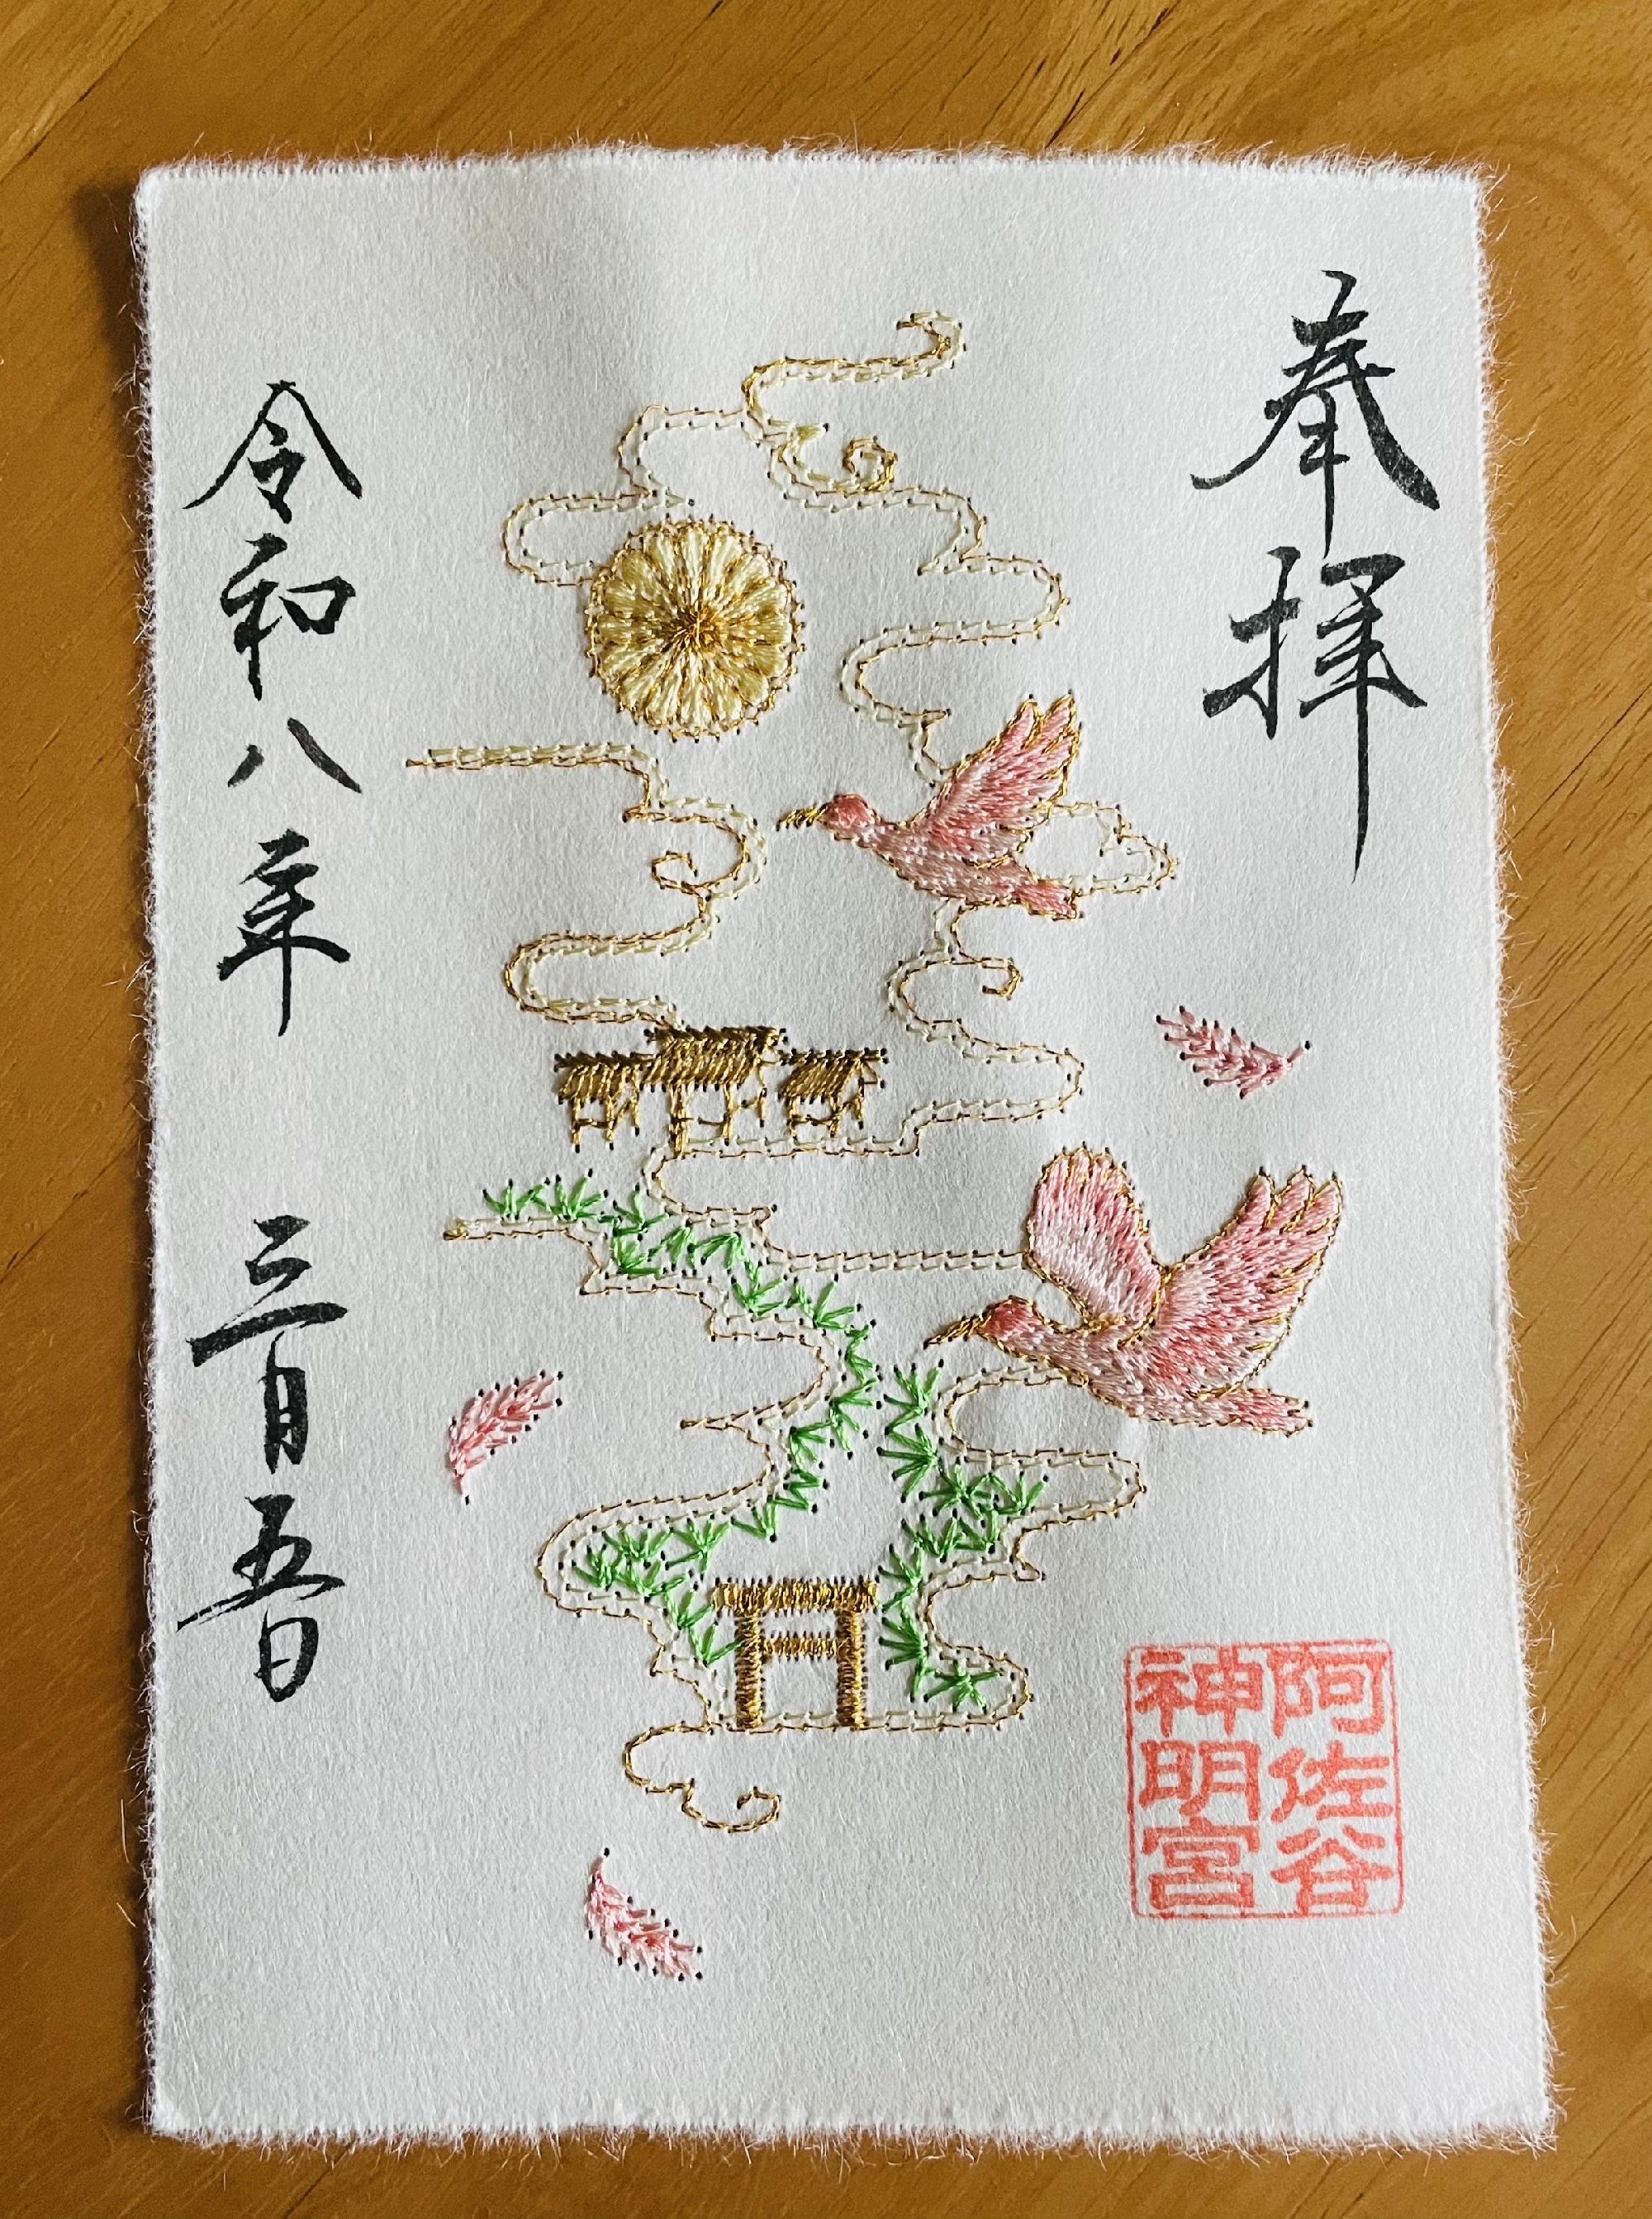 奉拝
阿佐谷
神明宮
令和八年 三月五日